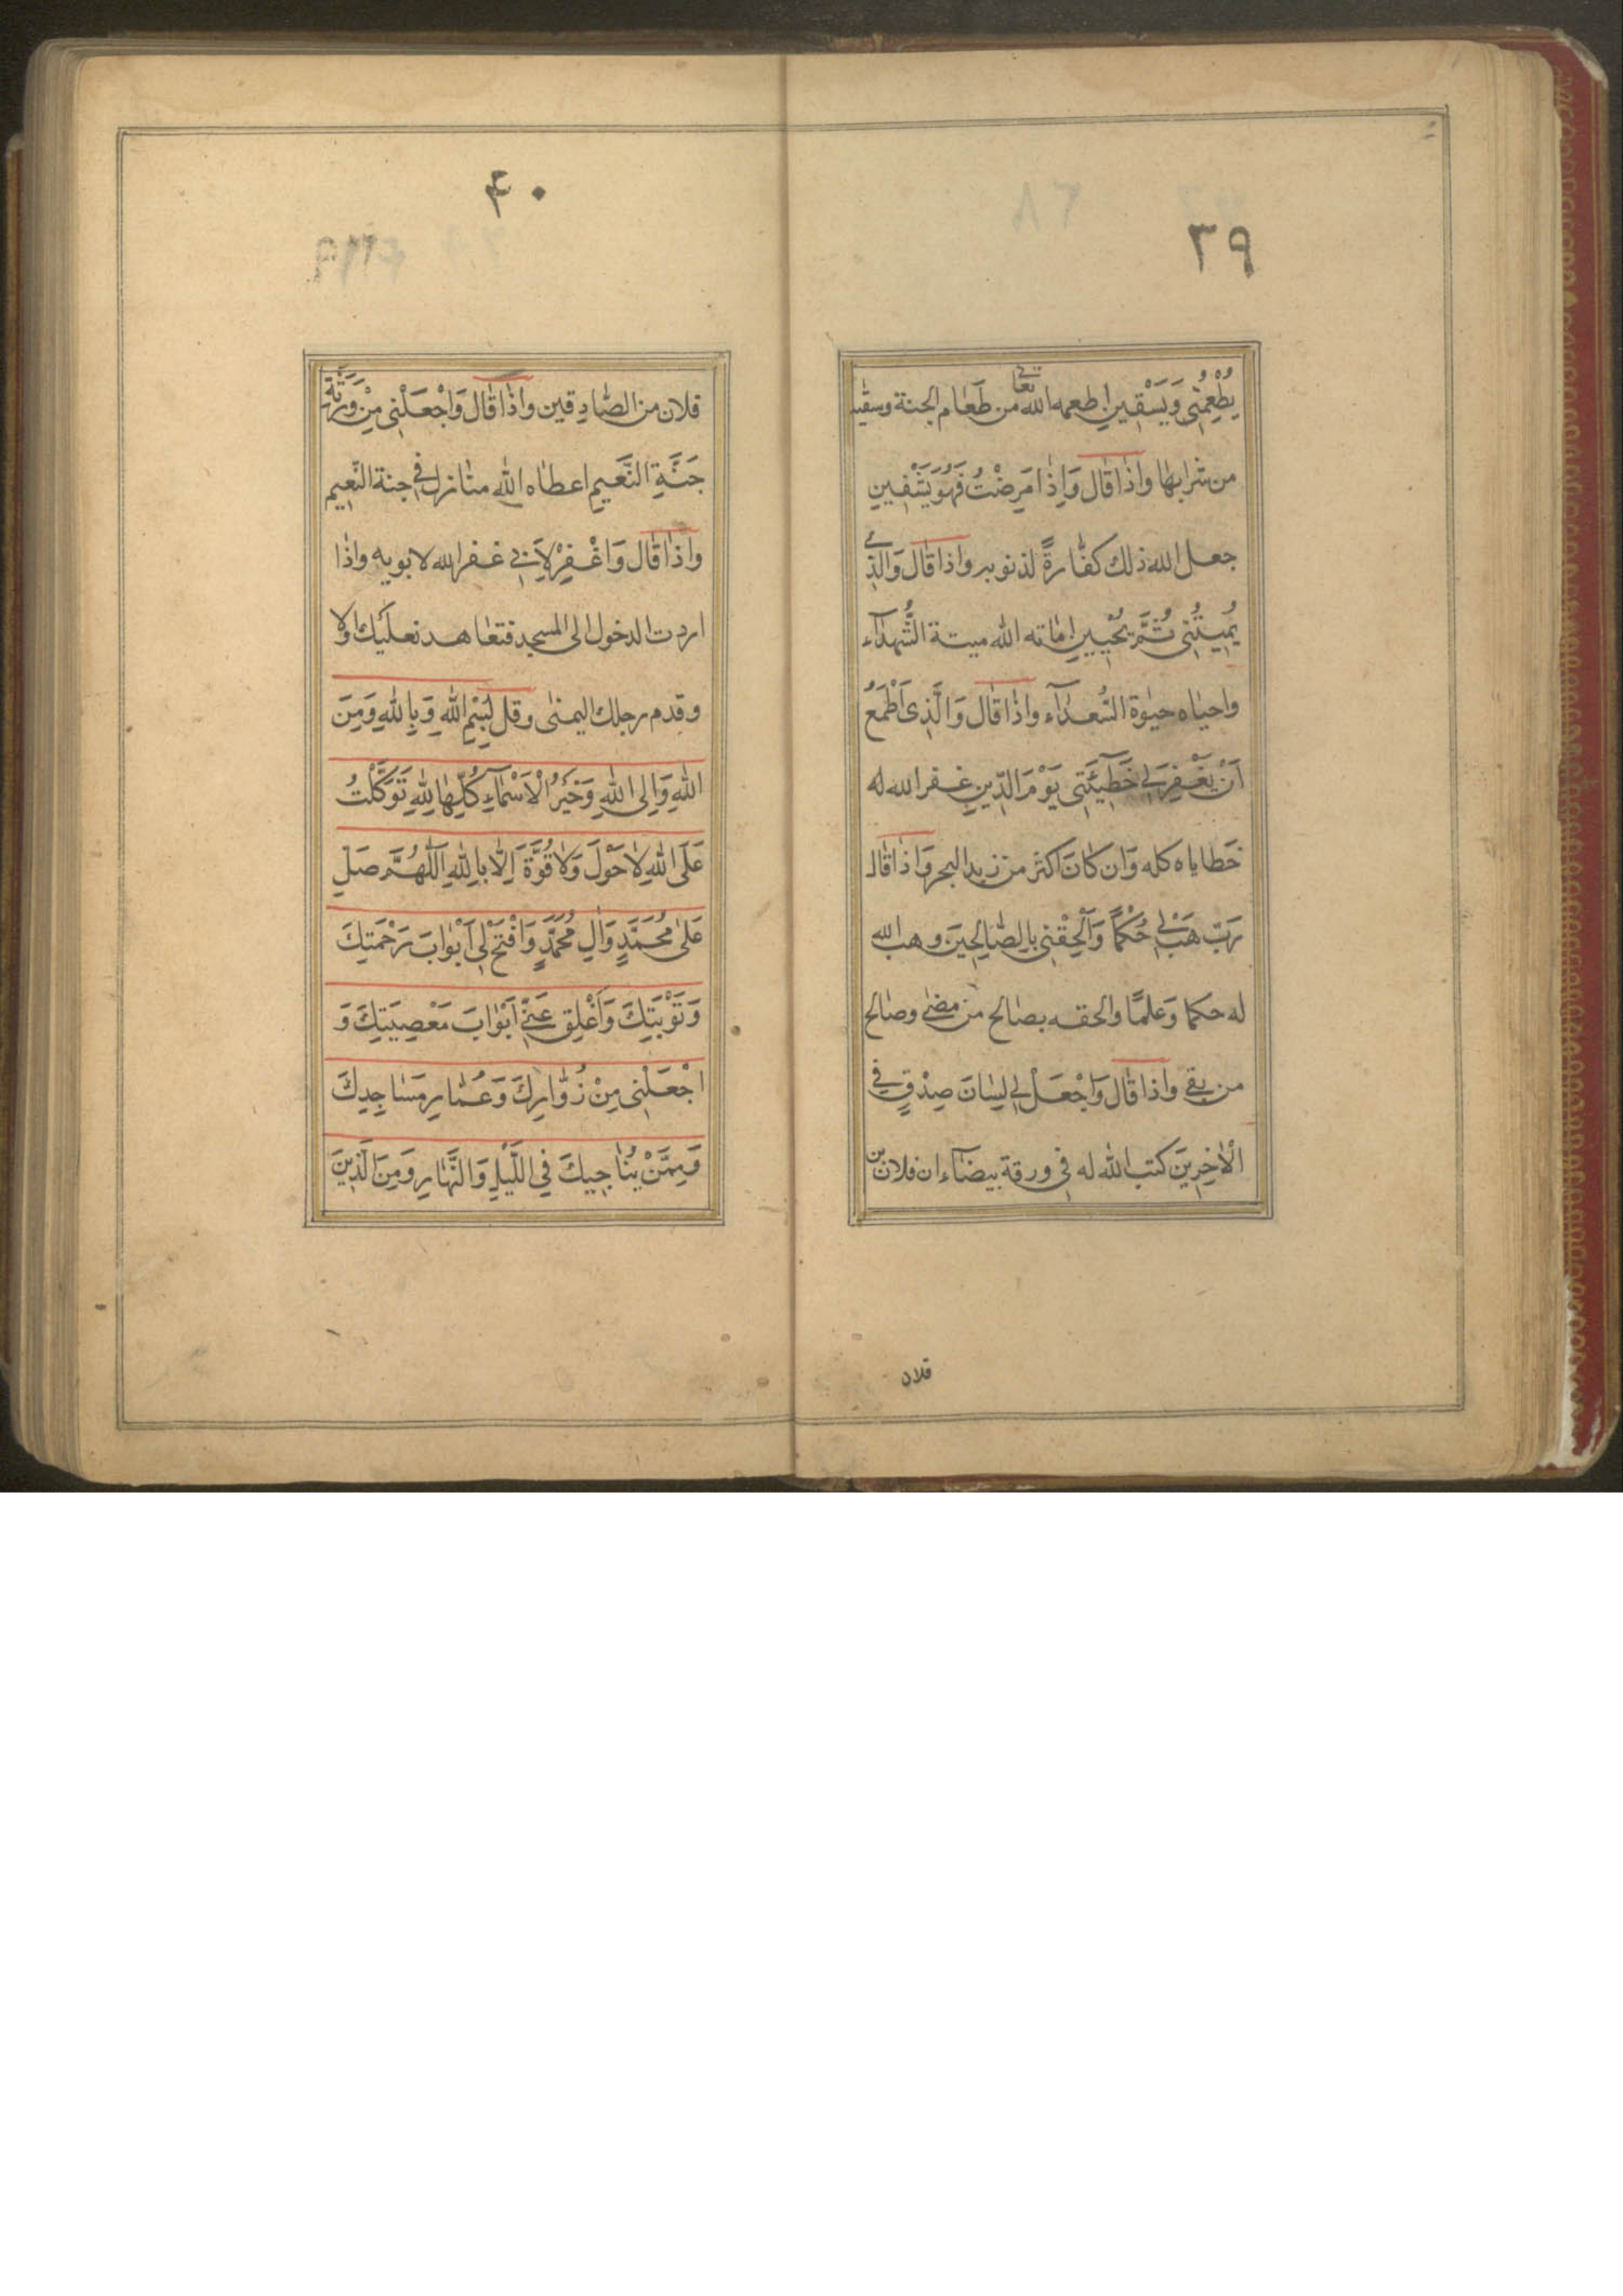 ٣٩
يُطْعِمُنِى وَيَسْقِينِ اطعمه الله تعالى من طَعَام الجنة وسقيه
من شرابها واذا قال وَاِذَا مَرِضْتُ فَهُوَ يَشْفِينِ
جعل الله ذلك كفّارةً لذنوبه واذا قال وَالَّذِى
يُمِيتُنِى ثُمَّ يُحْيِينِ اماته الله ميتة الشُّهداۤء
واحياه حيٰوة السُّعداۤء واذا قال وَالَّذِى اَطْمَعُ
اَنْ يَغْفِرَ لِى خَطِيۤئَتِى يَوْمَ الدِّينِ غفر الله له
خطاياه كله وَان كانَ اكثر من زبد البحر وَاذا قال
رَبِّ هَبْ لِى حُكْمًا وَاَلْحِقْنِى بِالصَّالِحِينَ وهب الله
له حكما وَعلمًا والحقه بصالح من مضى وصالح
من بقى واذا قال وَاجْعَلْ لِى لِسَانَ صِدْقٍ فِى
الْاٰخِرِينَ كتب الله له فى ورقة بيضاۤء ان فلان بن
فلان
٤٠
فلان من الصّادِقين واذا قال وَاجْعَلْنِى مِنْ وَرَثَةِ
جَنَّةِ النَّعِيمِ اعطاه الله منازل فى جنة النّعِيم
واذا قال وَاغْفِرْ لِاَبِى غفر الله لابويه واذا
اردت الدخول الى المسجد فتعاهد نعليك اولا
وقدم رجلك اليمنى وقل بِسْمِ اللهِ وَبِاللهِ وَمِنَ
اللهِ وَاِلَى اللهِ وَخَيْرُ الْاَسْمَاۤءِ كُلِّهَا لِلّٰهِ تَوَكَّلْتُ
عَلَى اللهِ لَا حَوْلَ وَلَا قُوَّةَ اِلَّا بِاللهِ اَللّٰهُمَّ صَلِّ
عَلٰى مُحَمَّدٍ وَاٰلِ مُحَمَّدٍ وَافْتَحْ لِى اَبْوَابَ رَحْمَتِكَ
وَتَوْبَتِكَ وَاَغْلِق عَنِّى اَبْوَابَ مَعْصِيَتِكَ وَ
اجْعَلْنِى مِنْ زُوَّارِكَ وَعُمَّارِ مَسَاجِدِكَ
وَمِمَّنْ يُنَاجِيكَ فِى اللَّيْلِ وَالنَّهَارِ وَمِنَ الَّذِينَ